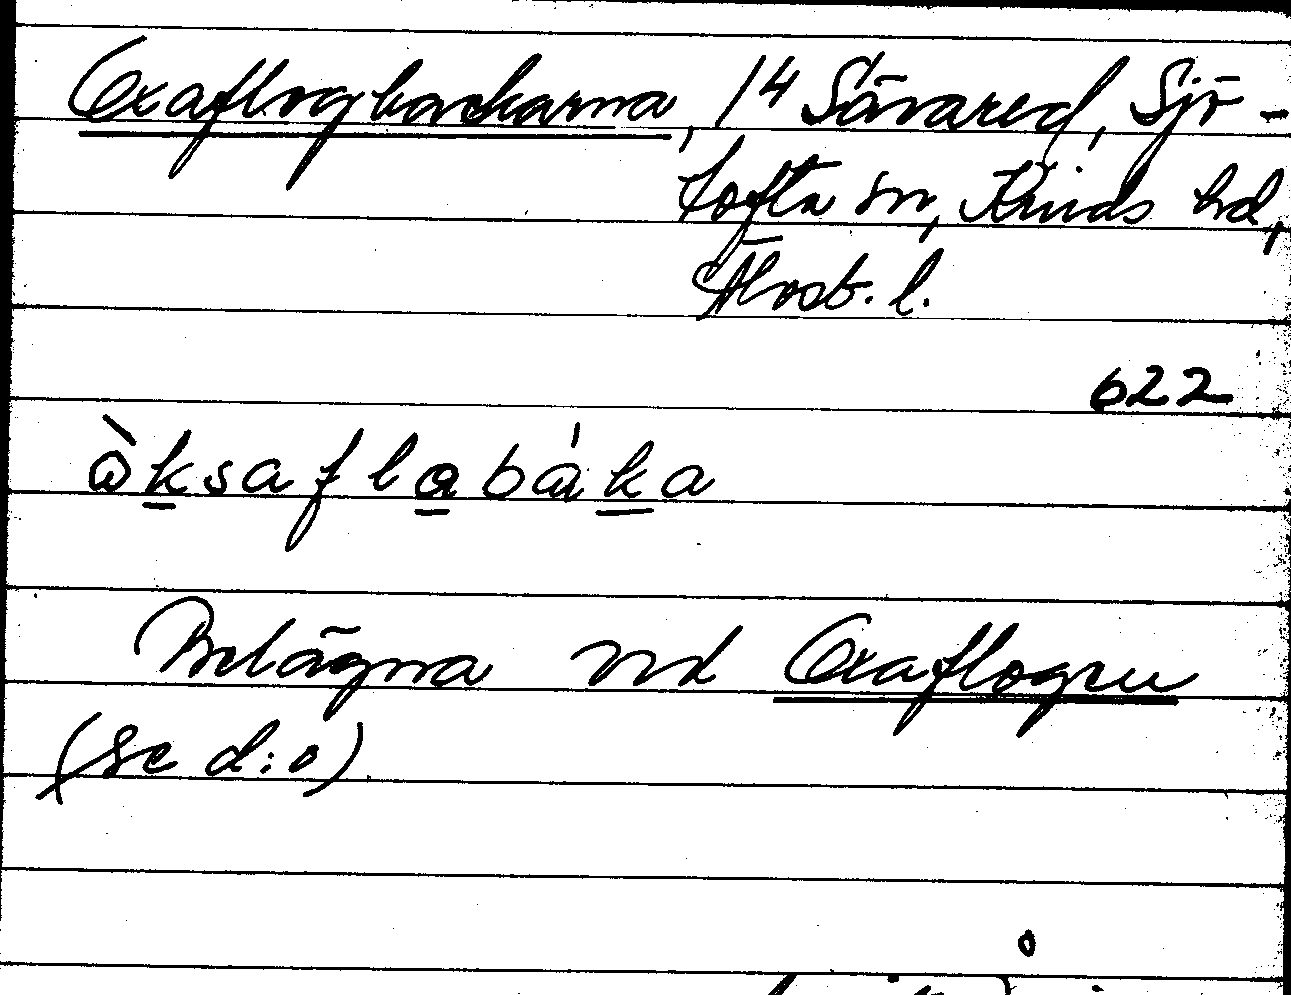 Oxaflogbackarna, 14 Sävared, Sjö-
tofta sn, Kinds hd,
Älvsb. l.
622
ò̀ksaflabáka
Belägna vid Oxaflogen
(se d:o)